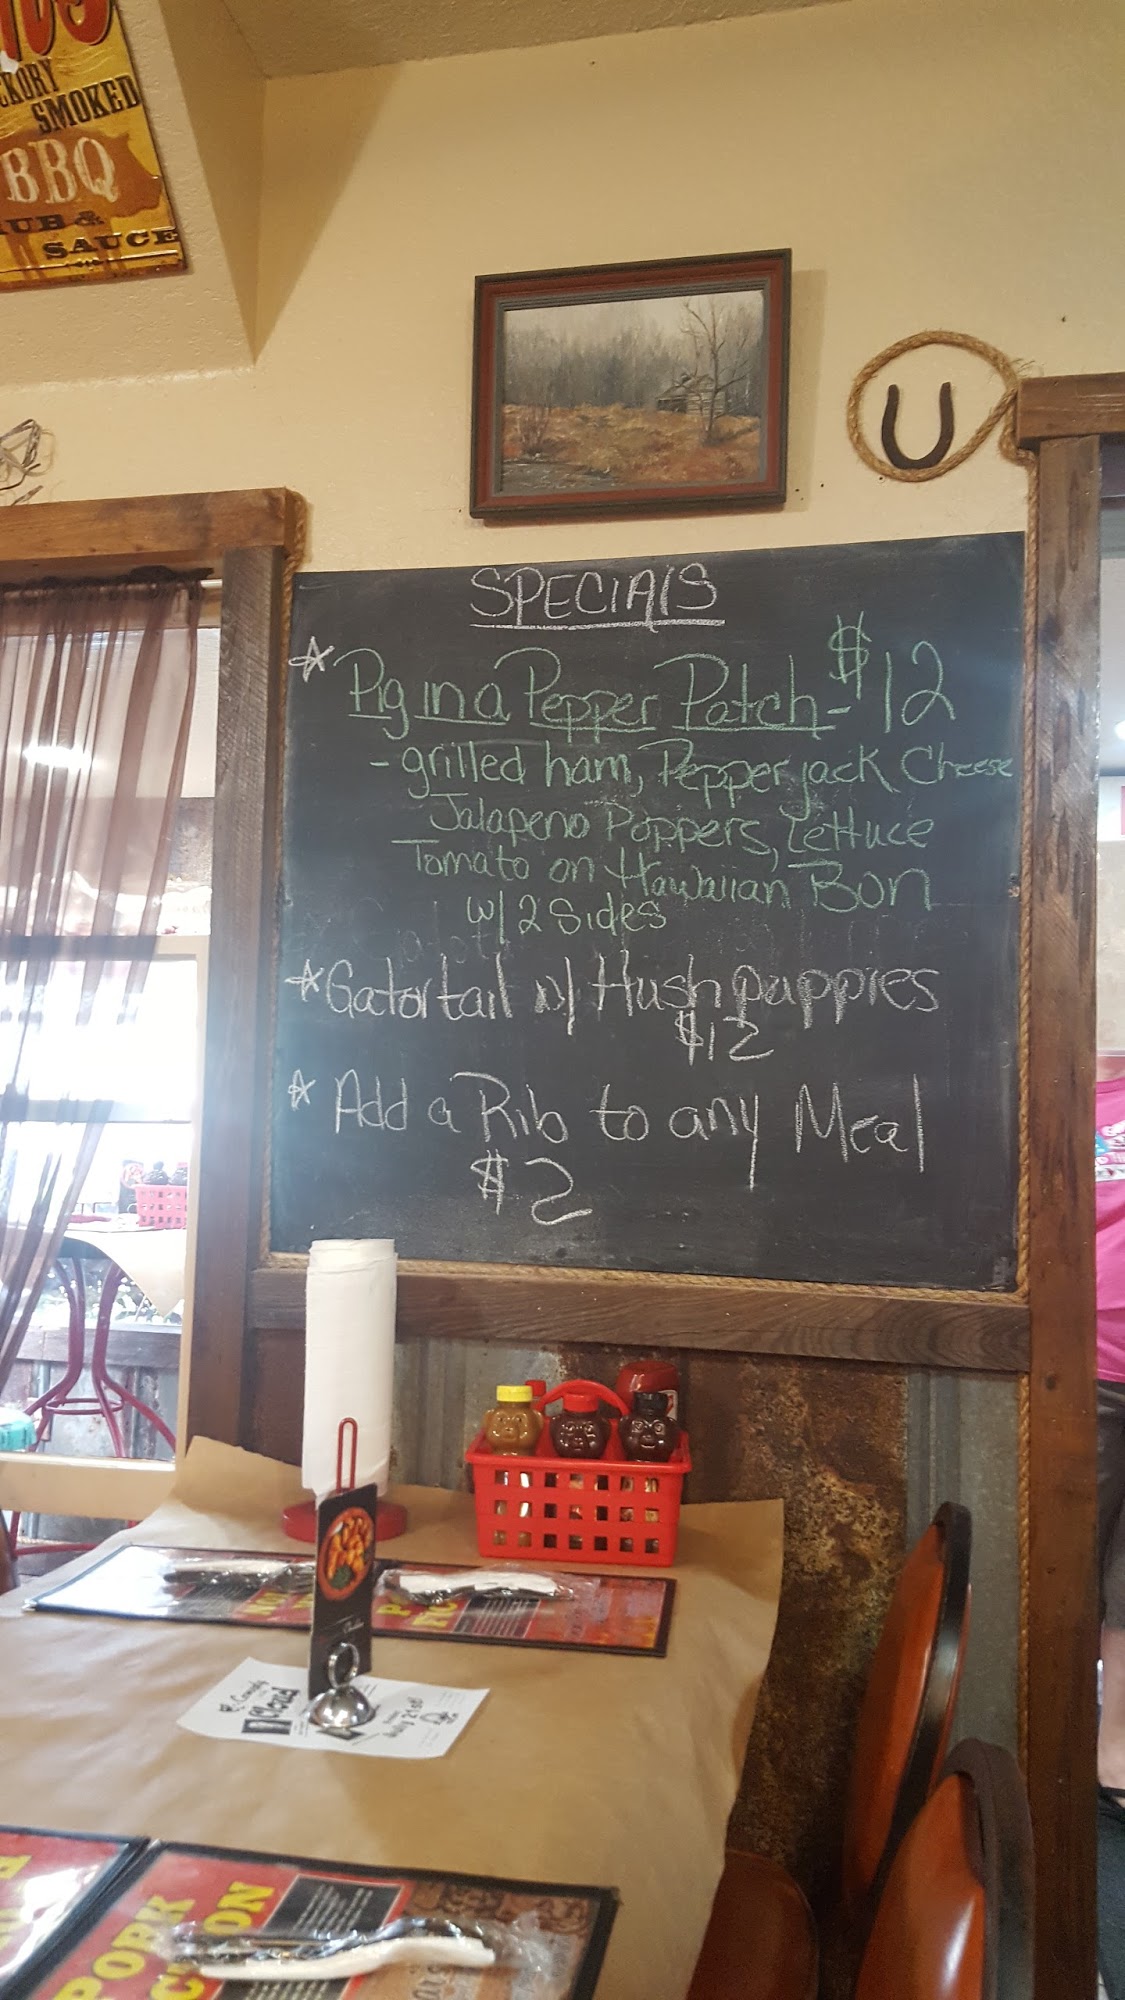 SMOKED
BBQ
SAUCE
SPECIAlS
Pig in a Pepper Patch - $12
- grilled ham, Pepper jack Cheese
Jalapeno Poppers, Lettuce
Tomato on Hawaiian Bon
w/ 2 Sides
Gator tail w/ Hush puppies
$12
Add a Rib to any Meal
$2
Cloud
July 21st
PORK